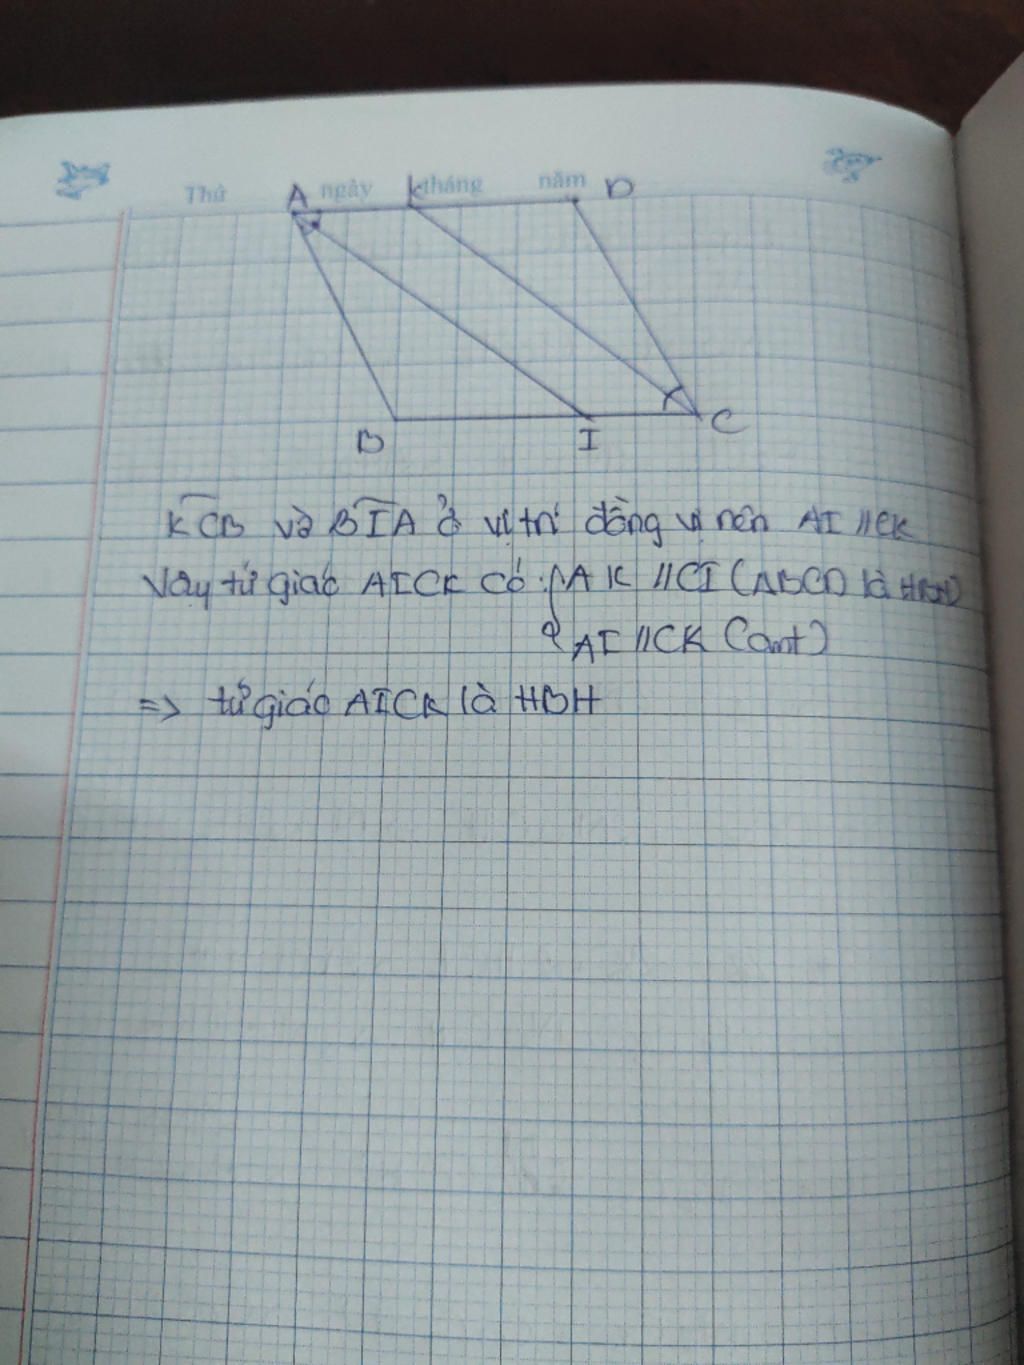 Thứ ngày tháng năm
A K D
B I C
KCB và BIA ở vị trí đồng vị nên AI // CK
Vậy tứ giác AICK có : { AK // CI (ABCD là HBH)
AI // CK (cmt)
=> tứ giác AICK là HBH